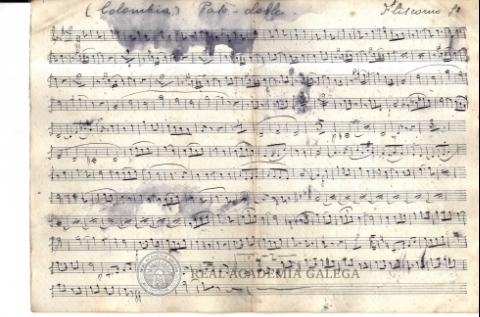 (Colombia) Paso-doble. Fliscorno 1º
REAL ACADEMIA GALEGA